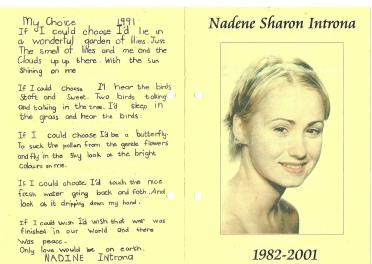 My Choice 1991
If I could choose I'd lie in
a wonderful garden of lilies. Just
The smell of lilies and me and the
Clouds up up there. With the sun
Shining on me
If I could choose I'll hear the birds
Stoft and Sweet. Two birds talking
and talking in the tree. I'd sleep in
the grass and hear the birds.
If I could choose I'd be a butterfly.
To suck the pollen from the gentle flowers
and fly in the sky look at the bright
Colours on me.
If I could choose I'd touch the nice
fresh water going back and foth. And
look at it dripping down my hand.
If I could wish I'd wish that war was
finished in our World and there
Was peace.
Only love would be on earth.
NADINE Introna
Nadene Sharon Introna
1982-2001